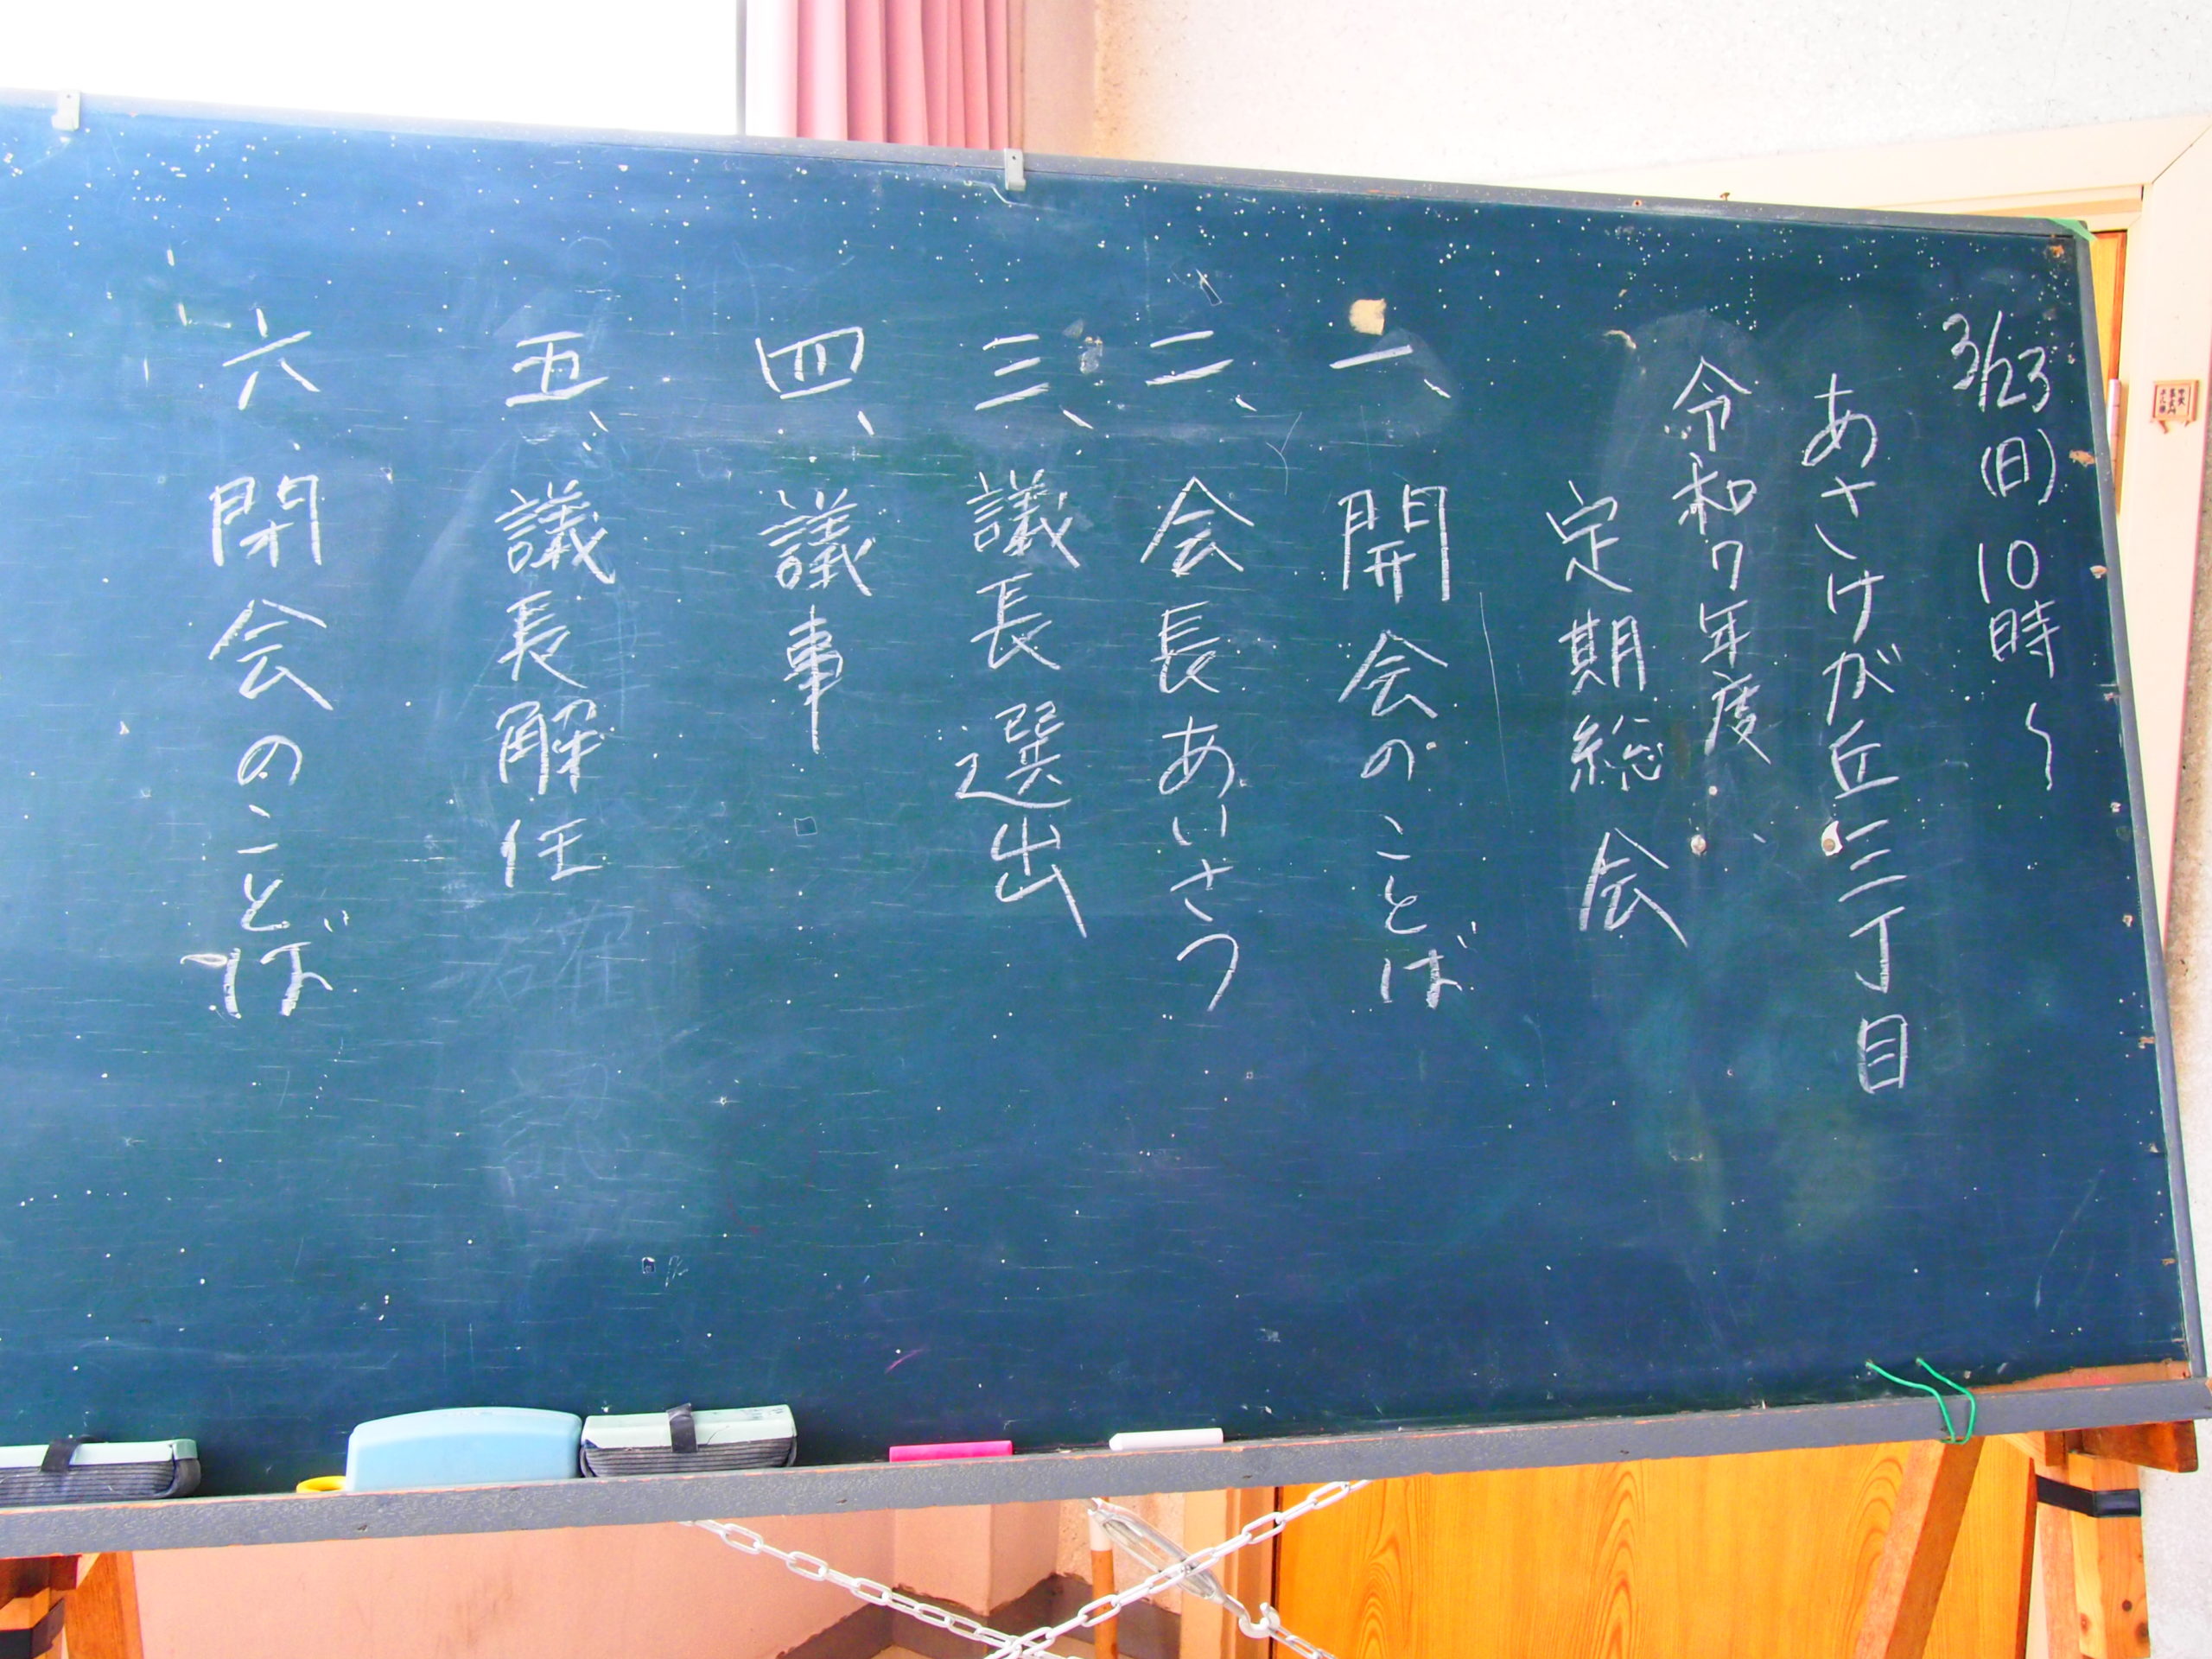 3/23(日)10時〜
あさけが丘三丁目
令和7年度
定期総会
一、開会のことば
二、会長あいさつ
三、議長選出
四、議事
五、議長解任
六、閉会のことば